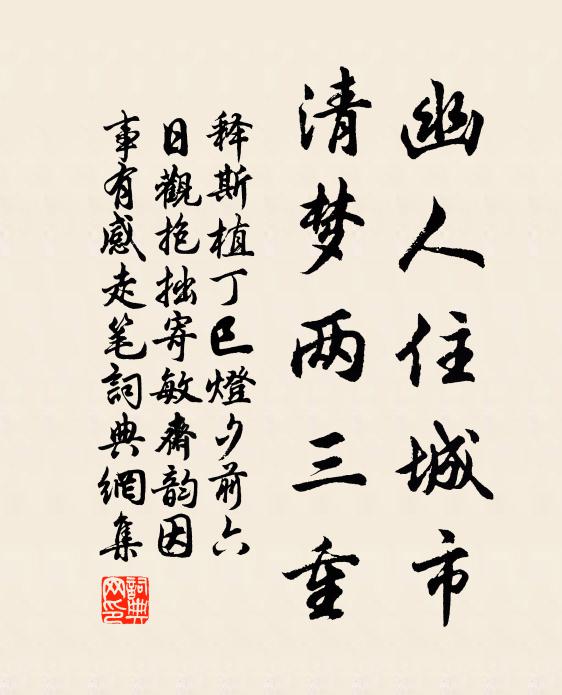 幽人住城市
清梦两三重
释斯植丁巳燈夕前六
日觀抱拙寄敏齋韵因
事有感走笔詞典網集
詞典網印